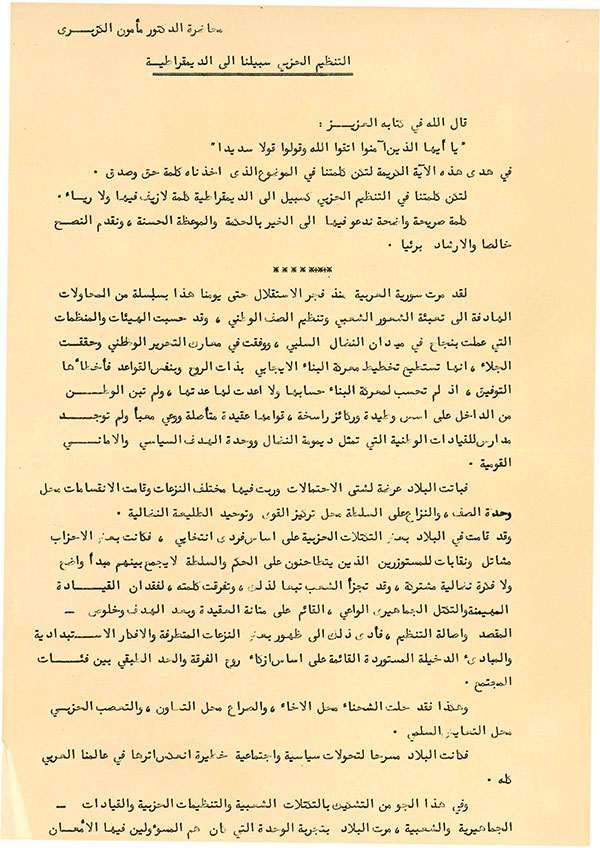 محاضرة الدكتور مأمون الكزبــــرى
التنظيم الحزبي سبيلنا الى الديمقراطيـة
قال الله في كتابه العزيــــز :
" يا أيها الذين آمنوا اتقوا الله وقولوا قولا سديدا "
في هدى هذه الآية الكريمة لتكن كلمتنا في الموضوع الذى اخذناه كلمة حق وصدق .
لتكن كلمتنا في التنظيم الحزبي كسبيل الى الديمقراطية كلمة لازيف فيها ولا ريـاء .
كلمة صريحة واضحة ندعو فيها الى الخير بالحكمة والموعظة الحسنة ، ونقدم النصـح
خالصا والارشاد بريئا .
*******
لقد مرت سورية العربية منذ فجر الاستقلال حتى يومنا هذا بسلسلة من المحاولات
الهادفة الى تعبئة الشعور الشعبي وتنظيم الصف الوطني ، وقد حسبت الهيئات والمنظمات
التي عملت بنجاح في ميدان النضال السلبي ، ووفقت في معارك التحرير الوطني وحققـت
الجلاء ، انها تستطيع تخطيط معركة البناء الايجابي بذات الروح وبنفس القواعد فأخطأها
التوفيق ، اذ لم تحسب لمعركة البناء حسابها ولا اعدت لها عدتها ، ولم تبن الوطــن
من الداخل على اسس وطيدة وركائز راسخة ، قوامها عقيدة متأصلة ووعي معبأ ولم توجــد
مدارس للقيادات الوطنية التي تمثل ديمومة النضال ووحدة الهدف السياسي والامانــي
القومية .
فباتت البلاد عرضة لشتى الاحتمالات وربت فيها مختلف النزعات وقامت الانقسامات محل
وحدة الصف ، والنزاع على السلطة محل تركيز القوى وتوحيد الطليعة النضالية .
وقد قامت في البلاد بعض التكتلات الحزبية على اساس فردى انتخابي ، فكانت بعض الاحزاب
مشاتل ونقابات للمستوزرين الذين يتطاحنون على الحكم والسلطة لايجمع بينهم مبدأ واضح
ولا فكرة نضالية مشتركة ، وقد تجزأ الشعب تبعا لذلك ، وتفرقت كلمته ، لفقدان القيـــادة
المهيمنة والتكتل الجماهيرى الواعي ، القائم على متانة العقيدة وبعد الهدف وخلوص ـ
المقصد واصالة التنظيم ، فأدى ذلك الى ظهور بعض النزعات المتطرفة والافكار الاســتبدادية
والمبادىء الدخيلة المستوردة القائمة على اساس اذكاء روح الفرقة والحد الطبقي بين فئـات
المجتمع .
وهكذا فقد حلت الشحناء محل الاخاء ، والصراع محل التعاون ، والتعصب الحزبـي
محل التعايش السلمي .
فكانت البلاد مسرحا لتحولات سياسية واجتماعية خطيرة انعكس اثرها في عالمنا العربي
كله .
وفي هذا الجو من التشكيك بالتكتلات الشعبية والتنظيمات الحزبية والقيادات ـ
الجماهيرية والشعبية ، مرت البلاد بتجربة الوحدة التي كان هم المسؤولين فيها الأمعـان